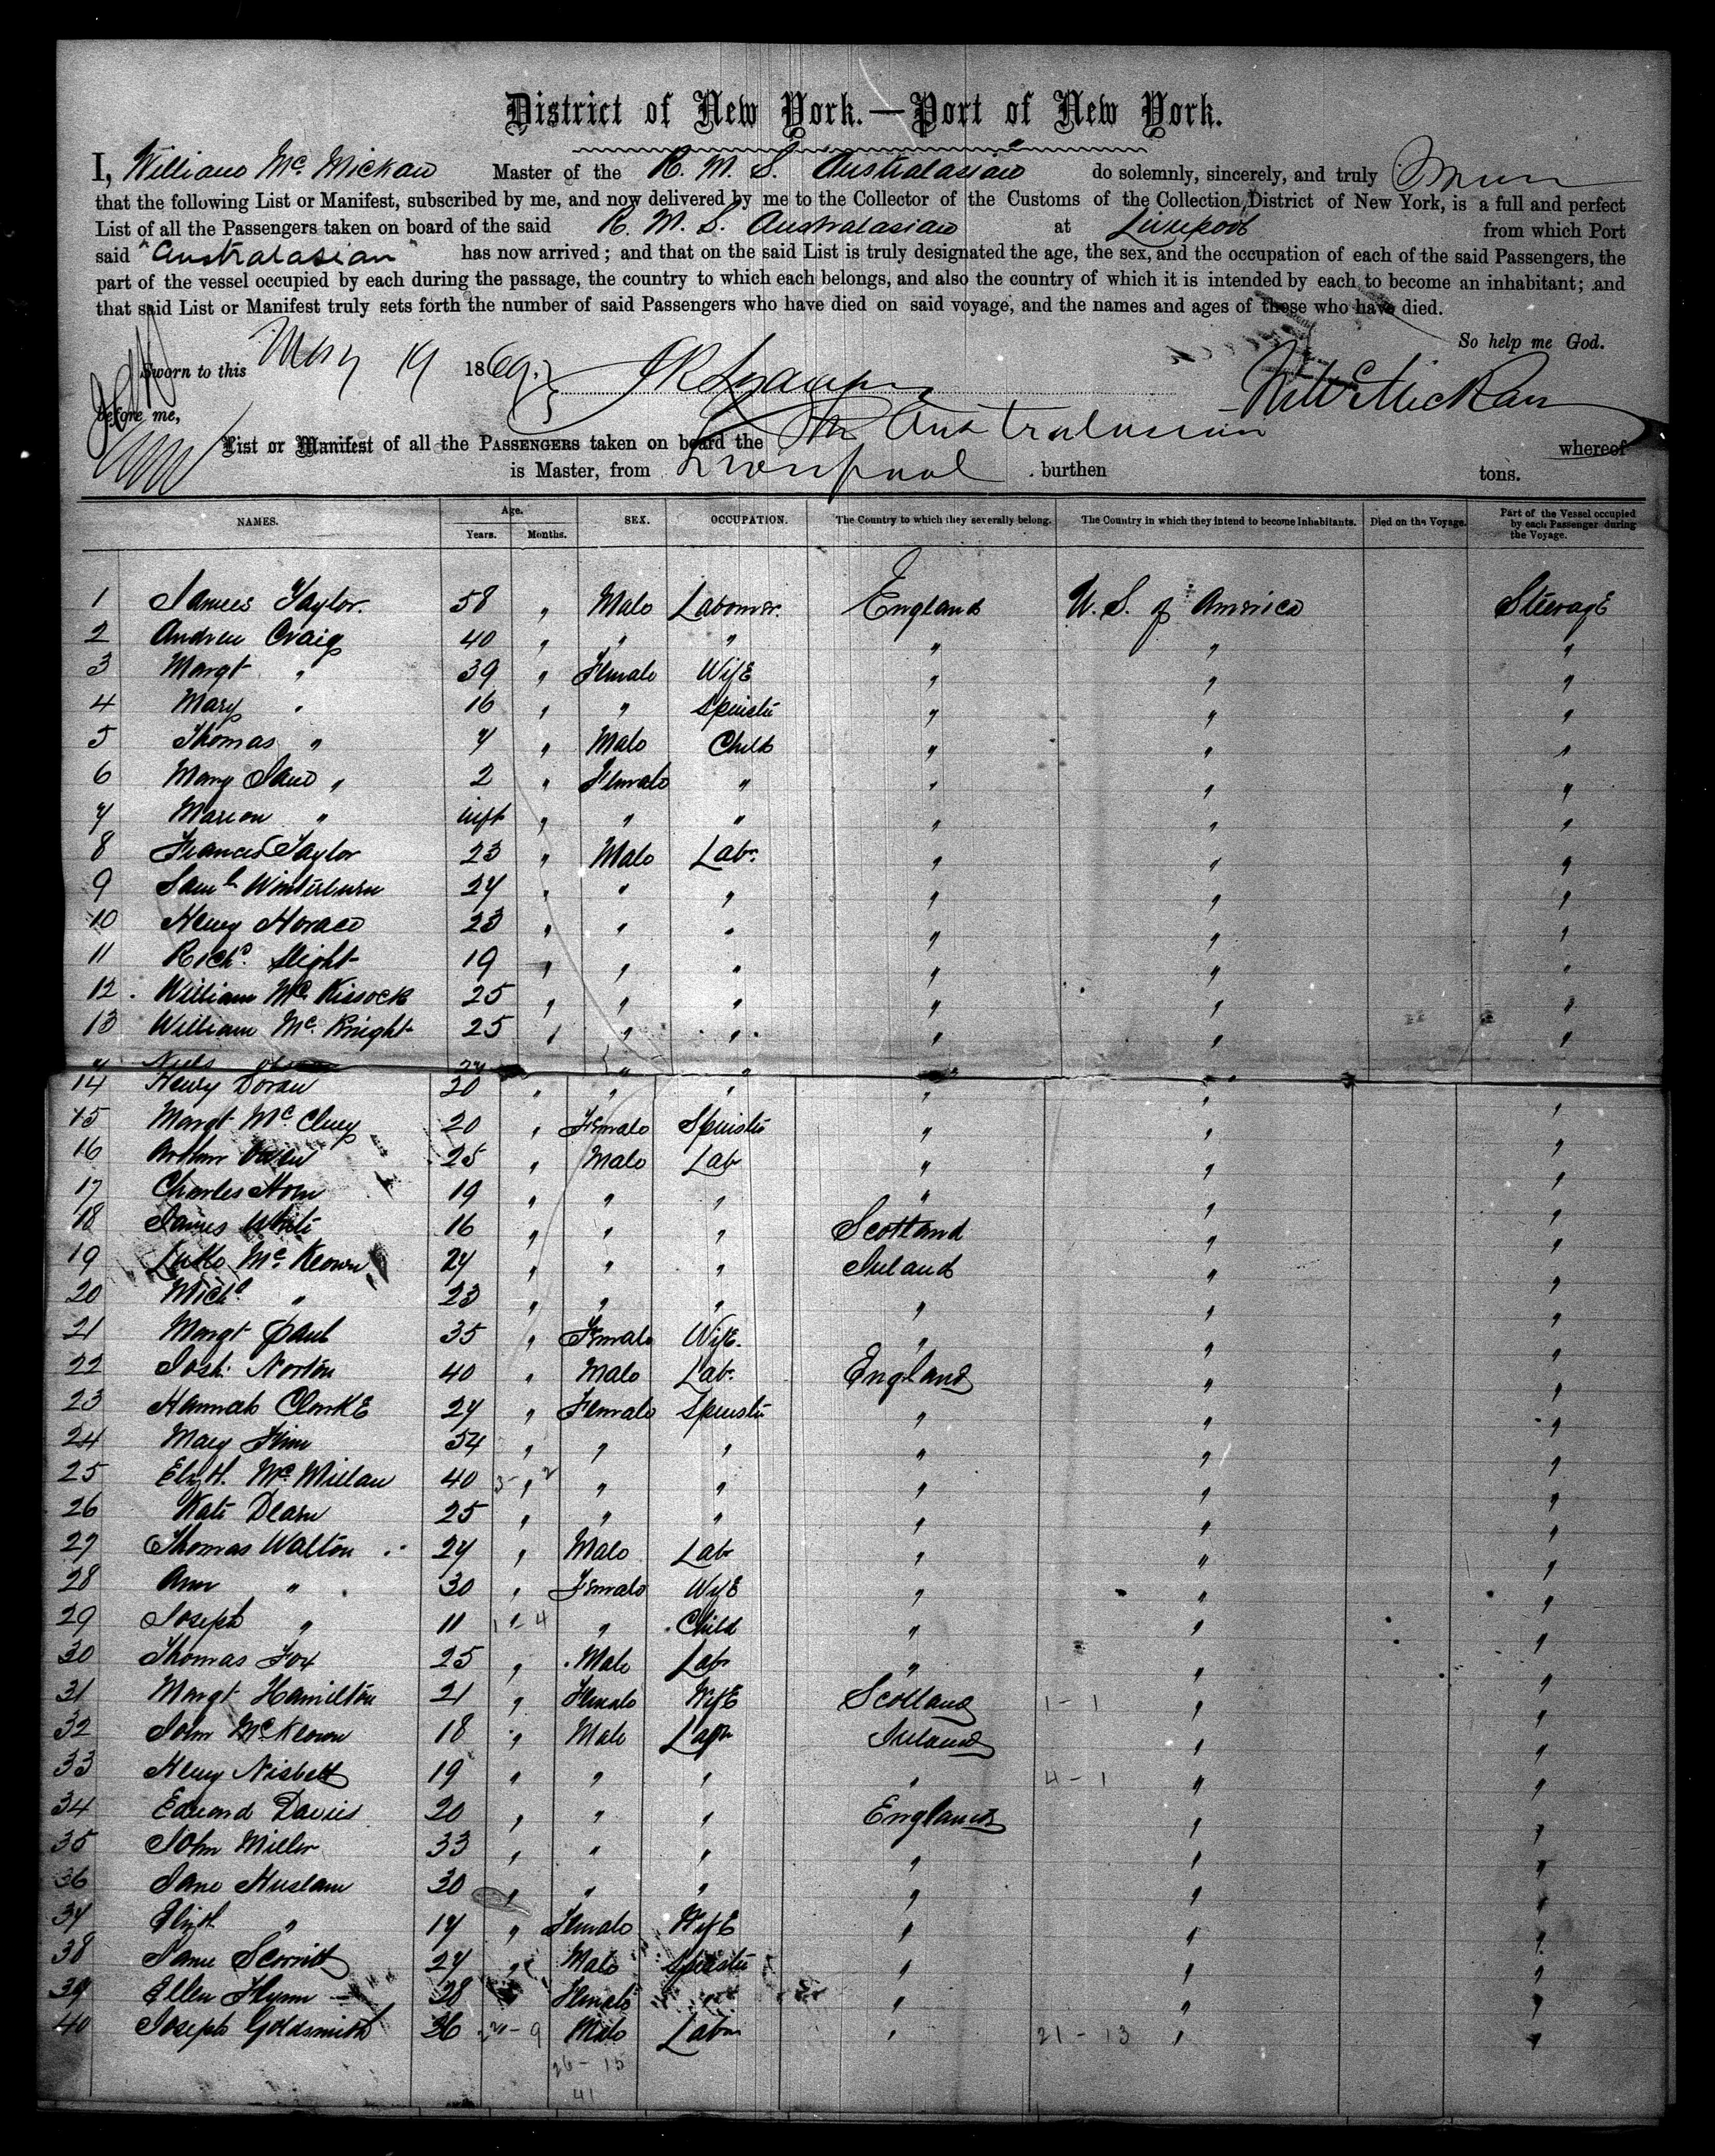 District of New York.—Port of New York.
I, William Mc. Mickan Master of the R. M. S. Australasian do solemnly, sincerely, and truly
that the following List or Manifest, subscribed by me, and now delivered by me to the Collector of the Customs of the Collection District of New York, is a full and perfect
List of all the Passengers taken on board of the said R. M. S. Australasian at Liverpool from which Port
said "Australasian" has now arrived; and that on the said List is truly designated the age, the sex, and the occupation of each of the said Passengers, the
part of the vessel occupied by each during the passage, the country to which each belongs, and also the country of which it is intended by each to become an inhabitant; and
that said List or Manifest truly sets forth the number of said Passengers who have died on said voyage, and the names and ages of those who have died.
So help me God.
Sworn to this May 19 1869.
before me, Wm McMickan
List or Manifest of all the PASSENGERS taken on board the Str Australasian whereof
is Master, from Liverpool burthen tons.
NAMES. Age. Years. Months. SEX. OCCUPATION. The Country to which they severally belong. The Country in which they intend to become Inhabitants. Died on the Voyage. Part of the Vessel occupied by each Passenger during the Voyage.
1 James Taylor. 58 " Male Labourer. England U. S. of America Steerage
2 Andrew Craig 40 " " " " " "
3 Margt " 39 " Female Wife " " "
4 Mary " 16 " " Spinstr " " "
5 Thomas " 7 " Male Child " " "
6 Mary Jane " 2 " Female " " " "
7 Marion " inft " " " " " "
8 Francis Taylor 23 " Male Labr. " " "
9 Saml Winterburn 24 " " " " " "
10 Henry Horace 23 " " " " " "
11 Richd. Slight 19 " " " " " "
12 William Mc. Kissock 25 " " " " " "
13 William Mc. Knight 25 " " " " " "
" Niels
14 Henry Doran 20 " " " " " "
15 Margt Mc Cluey 20 " Female Spinstr " " "
16 Arthur Owen 25 " Male Lab " " "
17 Charles Horn 19 " " " " " "
18 James White 16 " " " Scotland " "
19 Mc Keown 24 " " " Ireland " "
20 Michl " 23 " " " " " "
21 Margt Paul 35 " Female Wife. " " "
22 Josh. Norton 40 " Male Lab. England " "
23 Hannah Clarke 24 " Female Spinstr " " "
24 Mary Finn 54 " " " " " "
25 Elizth. Mc Millan 40 " " " " " "
26 Kate Dearn 25 " " " " " "
27 Thomas Walton 24 " Male Lab " " "
28 Ann " 30 " Female Wife " " "
29 Joseph " 11 1 - 4 " Child " " "
30 Thomas Fox 25 " Male Labr " " "
31 Margt Hamilton 21 " Female Wife Scotland 1 - 1 " "
32 John McKeown 18 " Male Labr Ireland " "
33 Henry Nisbett 19 " " " " 4 - 1 " "
34 Edward Davies 20 " " " England " "
35 John Miller 33 " " " " " "
36 Jane Huslam 30 " " " " " "
37 Elizth " 17 " Female Wife " " "
38 Scorritt 24 " Male Spinstr " " "
39 Ellen Flynn 28 Female " " "
40 Joseph Goldsmith 36 Male Labr " 21 - 13 " "
26 - 15
41